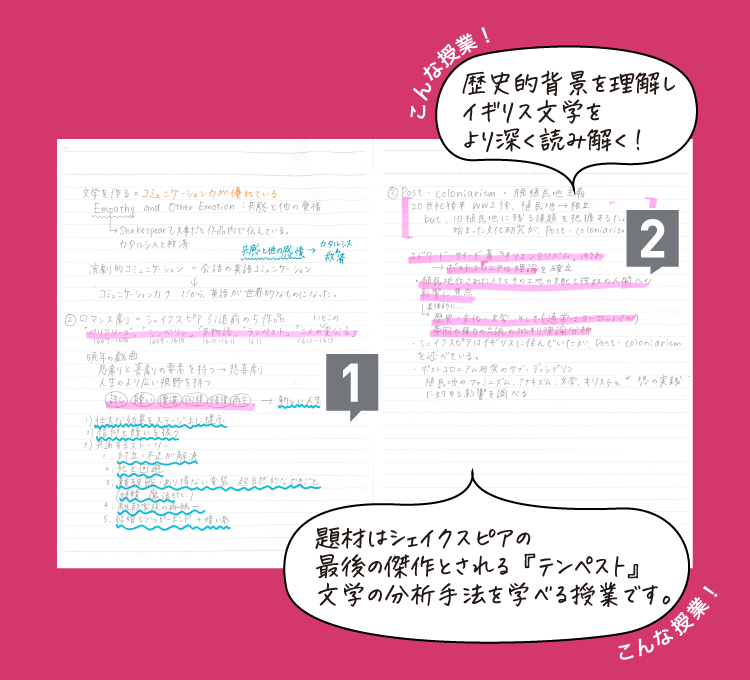 こんな授業！
歴史的背景を理解し
イギリス文学を
より深く読み解く！
文学を作る = コミュニケーション力が優れている
Empathy and Other Emotion : 共感と他の感情
Shakespeareも大事だと作品内で伝えている。
カタルシスと救済
共感と他の感情 → カタルシス
救済
演劇的コミュニケーション = 会話の英語コミュニケーション
↓
コミュニケーション力 だから、英語が世界的なものになった。
② ロマンス劇 = シェイクスピア引退前の5作品
「ペリクリーズ」「シンベリン」「冬物語」「テンペスト」「二人の貴公子」
1609-1608 1609-1610 1610-1611 1611 1612-1613
晩年の戯曲
悲劇と喜劇の要素を持つ → 悲喜劇
人生のより広い視野を持つ
許し 償い 再生 → 新しい人生
1) 壮大な効果をステージ上に提示
2) 信仰と償いを扱う
3) 共通するストーリー
1. 対立・不正が解決
2. 死を回避
3. 難破・あり得ない変装・超自然的なできごと
(妖精、魔法etc.)
4. 離散家族の再統一
5. 結婚とハッピーエンド + 暗い影
1
③ Post-coloniarism = 脱植民地主義
20世紀後半 WW2後、植民地 → 独立
but、旧植民地に残る課題を把握するた
始まった文化研究が、Post-coloniarism
2
エドワード・サイード著「オリエンタリズム」1978
→ ポストコロニアル理論を確立
・植民地化された人々とその土地の支配と搾取の人間への
影響に焦点
具体的に…
歴史・文化・文学、そして(通常はヨーロッパの)
帝国の様々な言説の批判的理論分析
・シェイクスピアはイギリスに住んでいたが、Post-coloniarism
を述べている。
・ポストコロニアル研究のサブ・ディシプリン
植民地のフェミニズム、アナキズム、文学、キリスト
に対する影響を調べる
題材はシェイクスピアの
最後の傑作とされる『テンペスト』
文学の分析手法を学べる授業です。
こんな授業！